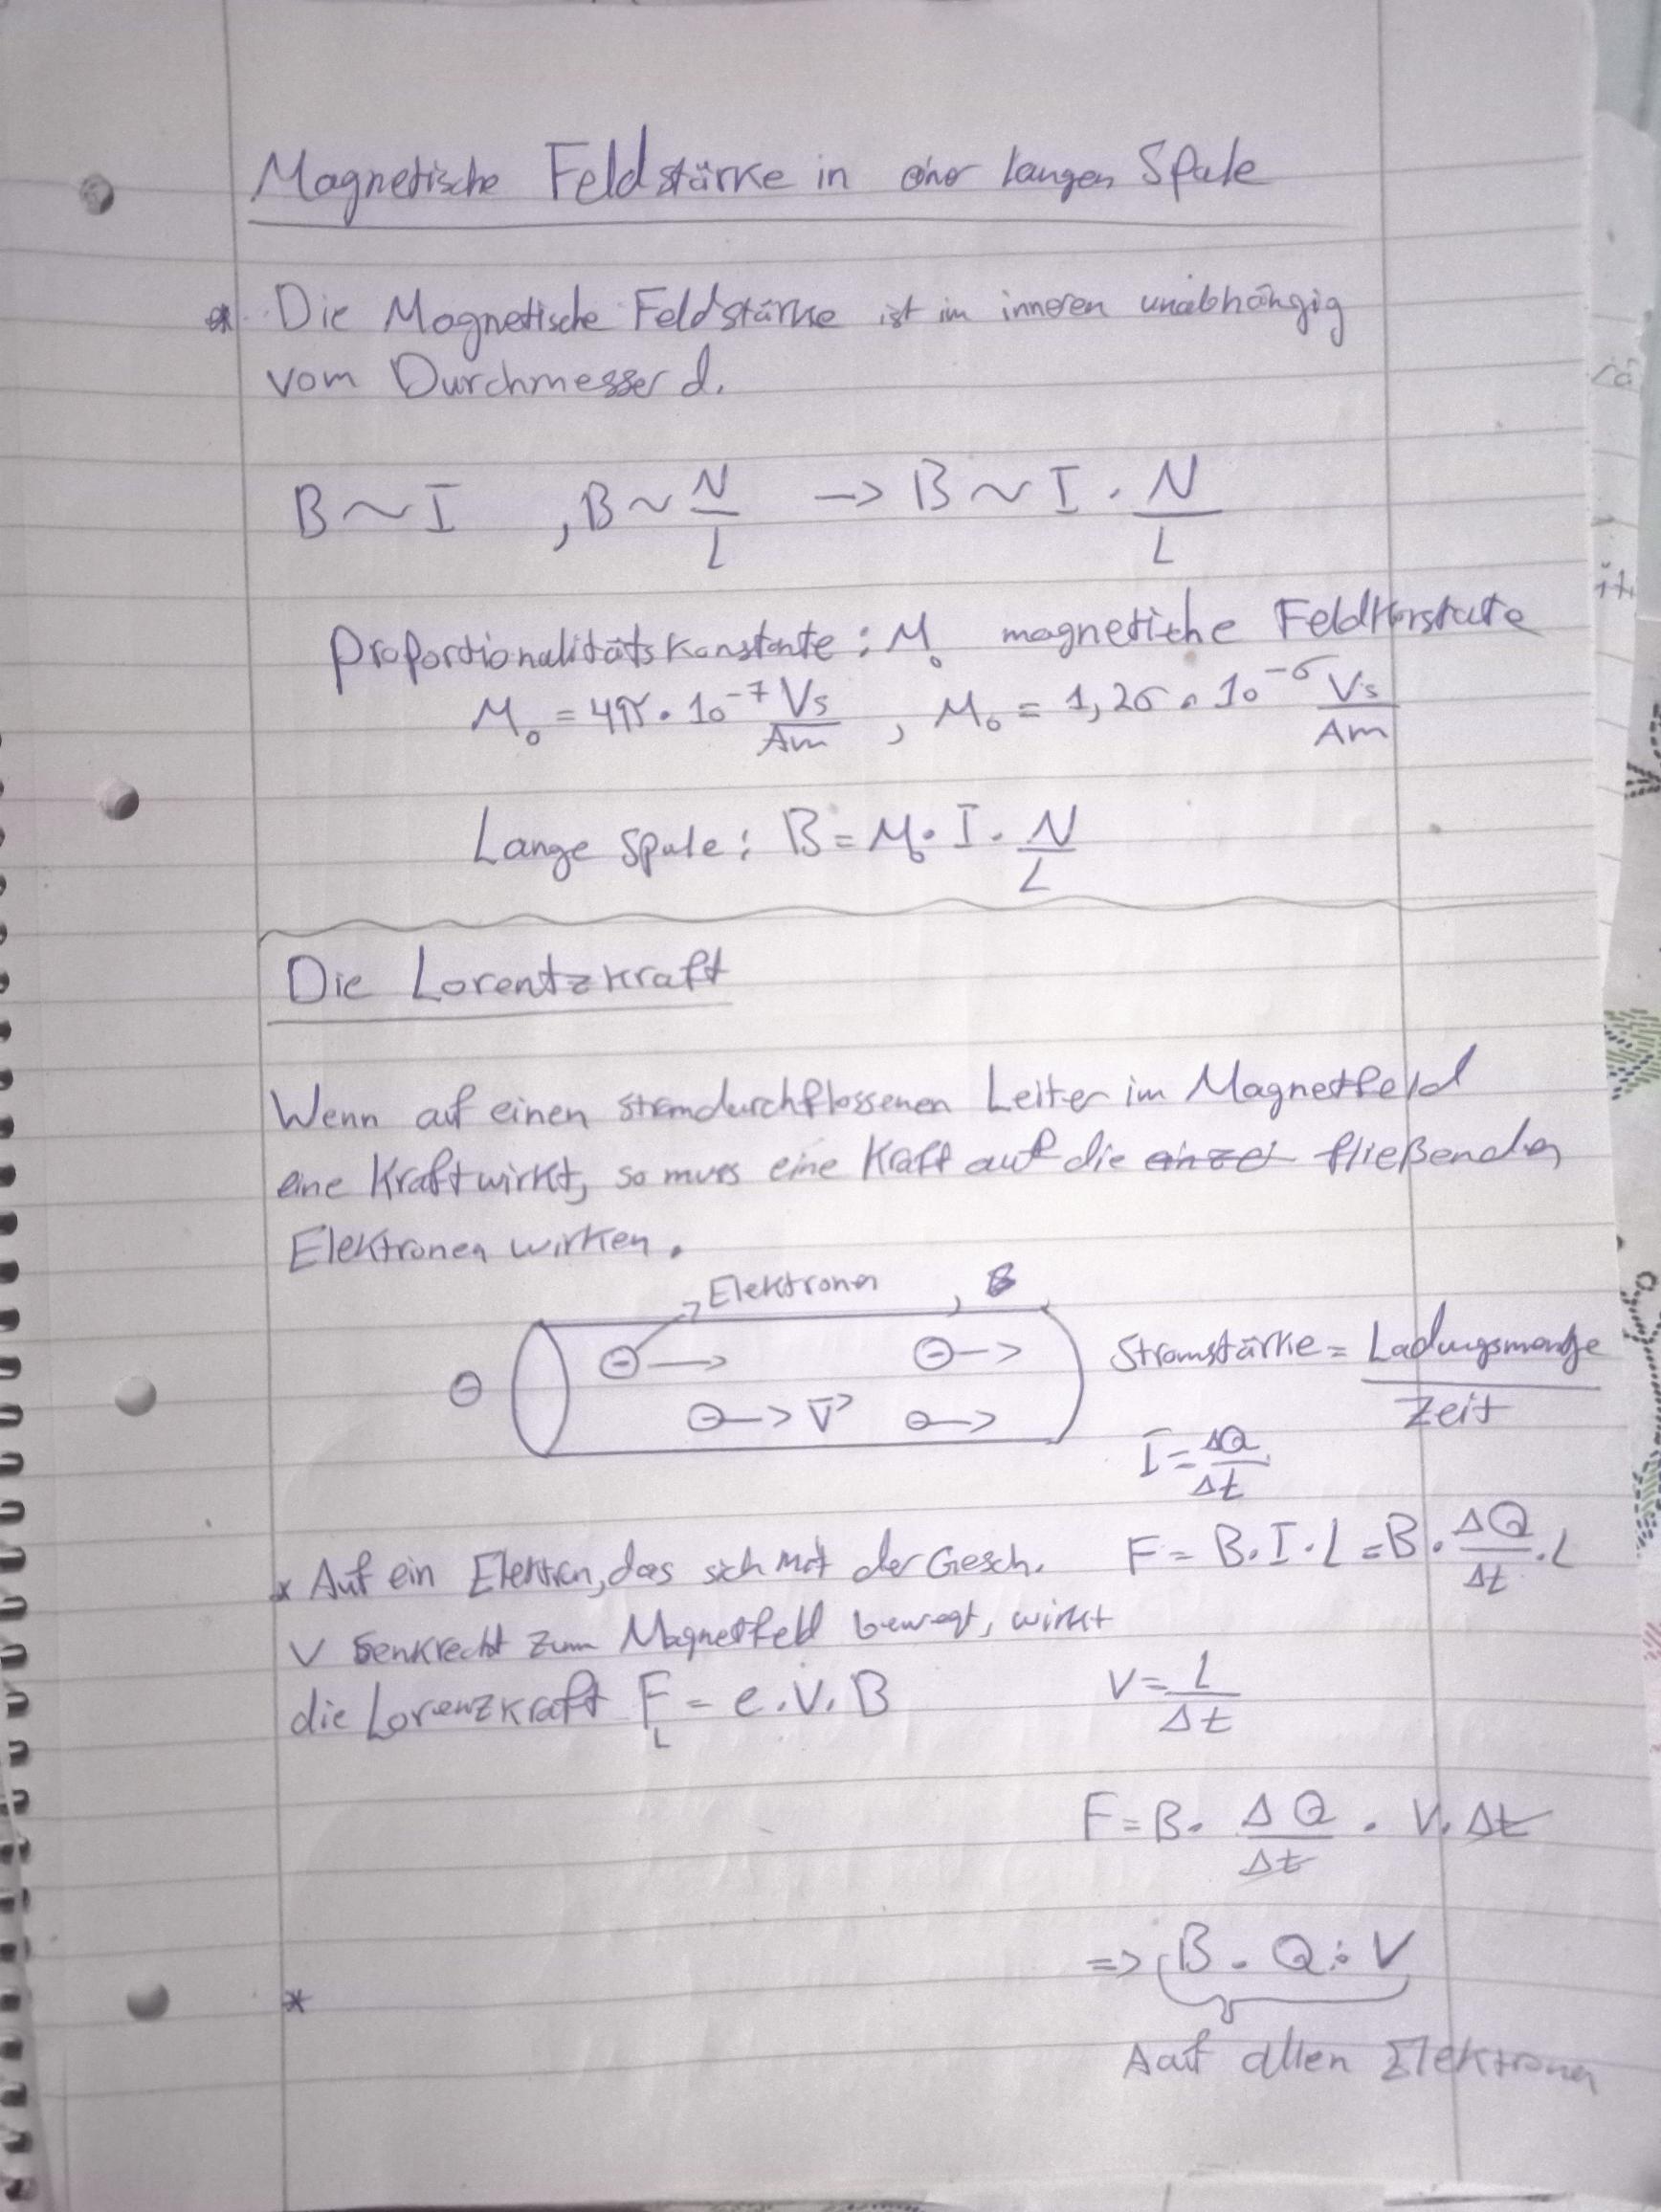 Magnetische Feldstärke in einer langen Spule
* Die Magnetische Feldstärke ist im inneren unabhängig
vom Durchmesser d.
B ~ I , B ~ N/L -> B ~ I · N/L
Proportionalitätskonstante : M₀ magnetische Feldkonstate
M₀ = 4π · 10⁻⁷ Vs/Am , M₀ = 1,26 · 10⁻⁶ Vs/Am
Lange Spule : B = M₀ · I · N/L
Die Lorentzkraft
Wenn auf einen stromdurchflossenen Leiter im Magnetfeld
eine Kraft wirkt, so muss eine Kraft auf die einzel fließenden
Elektronen wirken.
Elektronen , B
⊖ ⊖ -> ⊖ ->
⊖ -> v⃗ ⊖ ->
Stromstärke = Ladungsmenge/Zeit
I = ΔQ/Δt
* Auf ein Elektron, das sich mit der Gesch.
V senkrecht zum Magnetfeld bewegt, wirkt
die Lorenzkraft F_L = e · V · B
F = B · I · L = B · ΔQ/Δt · L
V = L/Δt
F = B · ΔQ/Δt · V · Δt
=> B · Q · V
Aauf allen Elektronen
*